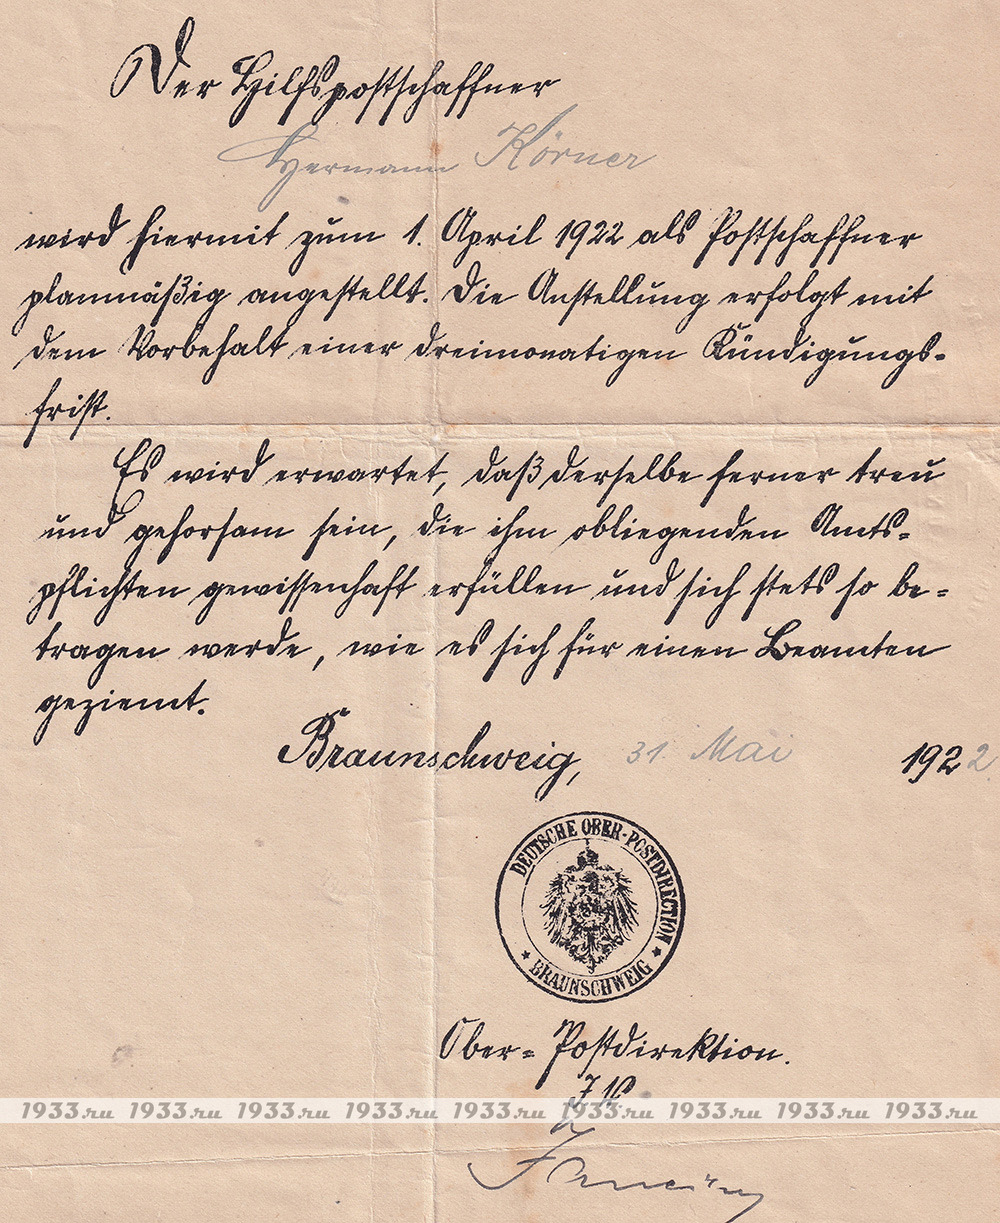 Der Hilfspostschaffner
Hermann Körner
wird hiermit zum 1. April 1922 als Postschaffner
planmäßig angestellt. Die Anstellung erfolgt mit
dem Vorbehalt einer dreimonatigen Kündigungs-
frist.
Es wird erwartet, daß derselbe ferner treu
und gehorsam sein, die ihm obliegenden Amts-
pflichten gewissenhaft erfüllen und sich stets so be-
tragen werde, wie es sich für einen Beamten
geziemt.
Braunschweig, 31. Mai 1922.
DEUTSCHE OBER-POSTDIRECTION
* BRAUNSCHWEIG *
Ober-Postdirektion.
1933.ru 1933.ru 1933.ru 1933.ru 1933.ru 1933.ru 1933.ru 1933.ru 1933.ru